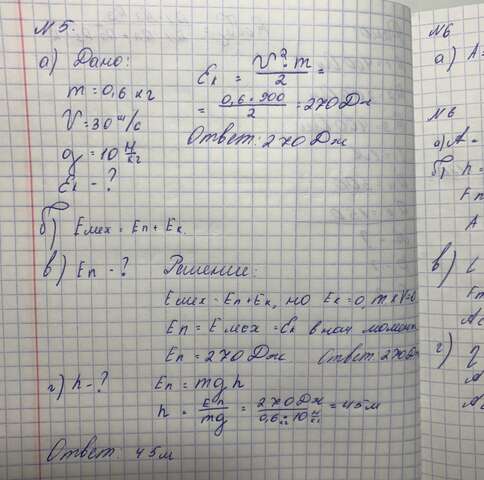 № 5.
а) Дано:
m = 0,6 кг
V = 30 м/с
g = 10 Н/кг
Eк - ?
Eк = V² · m / 2 =
= 0,6 · 900 / 2 = 270 Дж
Ответ: 270 Дж
б) Eмех = Eп + Eк.
в) Eп - ? Решение:
Eмех = Eп + Eк, но Eк = 0, т.к V=0
Eп = Eмех = Eк в нач. момент
Eп = 270 Дж Ответ: 270 Дж
г) h - ? Eп = mgh
h = Eп / mg = 270 Дж / 0,6 кг · 10 Н/кг = 45 м
Ответ: 45 м
№6
а) A =
№6
а) A =
б) h =
Fт
A
в)
Fт
Aс
г) η
A
Aс